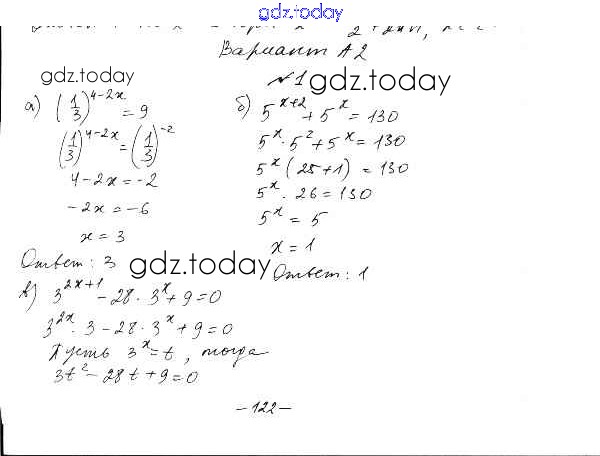 gdz.today
Вариант А2
№1
gdz.today gdz.today
а) (1/3)^(4-2x) = 9
(1/3)^(4-2x) = (1/3)^(-2)
4-2x = -2
-2x = -6
x = 3
Ответ: 3
б) 5^(x+2) + 5^x = 130
5^x · 5^2 + 5^x = 130
5^x (25+1) = 130
5^x · 26 = 130
5^x = 5
x = 1
Ответ: 1
gdz.today
в) 3^(2x+1) - 28 · 3^x + 9 = 0
3^(2x) · 3 - 28 · 3^x + 9 = 0
Пусть 3^x = t, тогда
3t^2 - 28t + 9 = 0
-122-
gdz.today